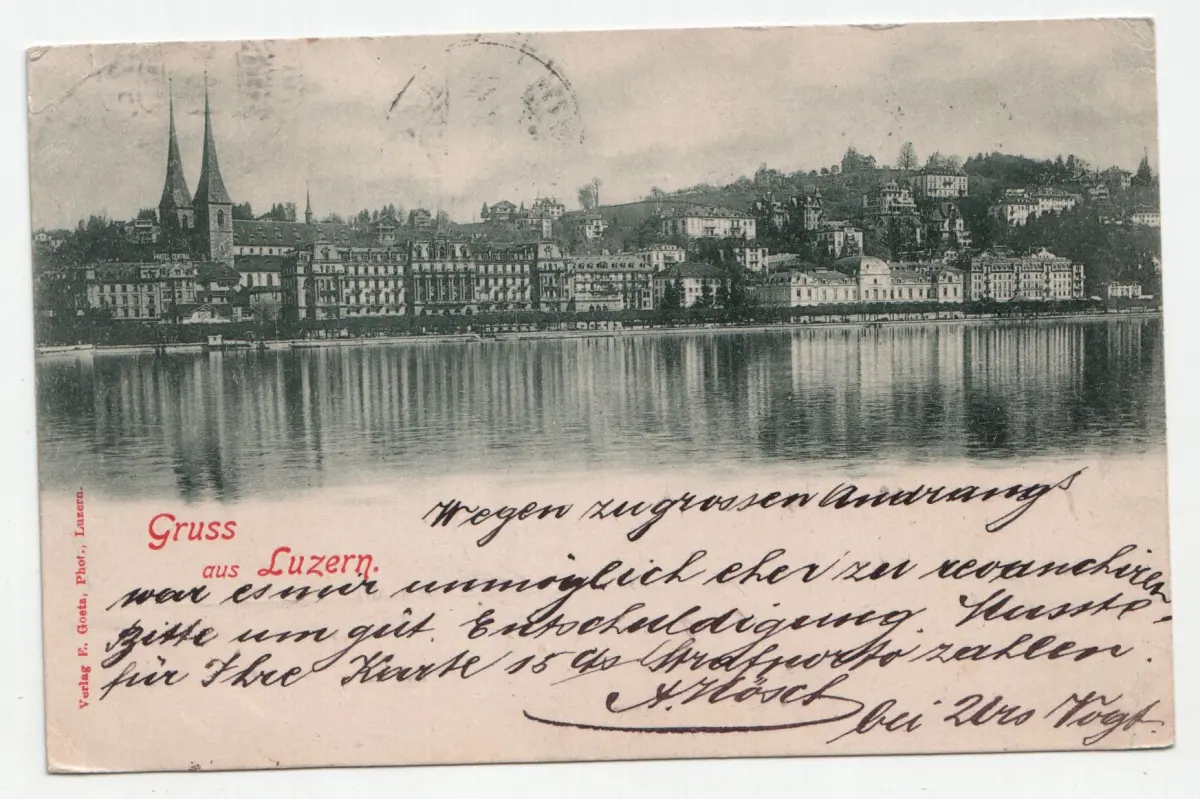 HOTEL CENTRAL
Verlag E. Goetz, Phot., Luzern.
Gruss
aus Luzern.
Wegen zu grossen Andrangs
war es mir unmöglich eher zu revanchiren
Bitte um güt. Entschuldigung. Musste,
für Ihre Karte 15 cts Strafporto zahlen.
A. Hösch
bei Urs Vogt.